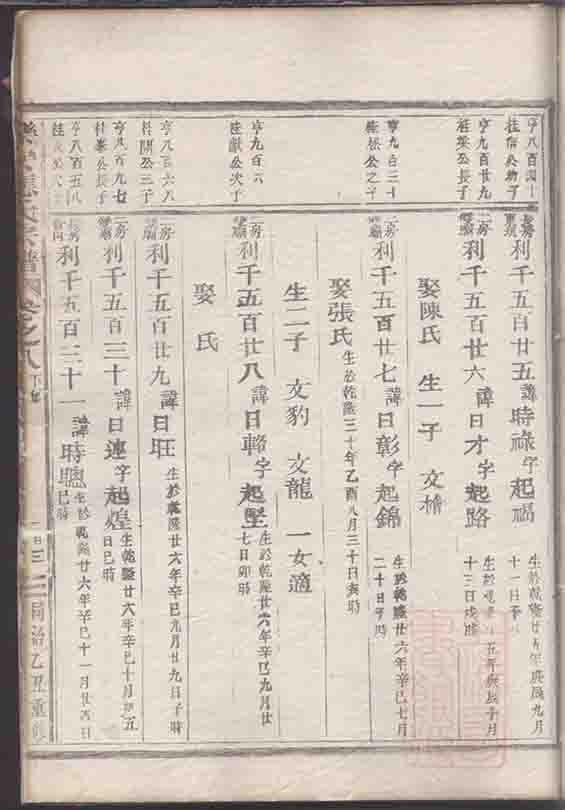 亨八百四十
桂信公幼子
長房
利千五百廿五諱時祿字起禍
生於乾隆廿五年庚辰九月
十一日子
亨九百廿九
桂梁公長子
二房
利千五百廿六諱日才字起路
生於乾隆廿五年庚辰十月
十三日戌時
娶陳氏 生一子 文
亨九百三十
桂松公之子
二房
利千五百廿七諱日彰字起錦
生於乾隆廿六年辛巳七月
二十日子時
娶張氏
生於乾隆三十年乙酉八月三十日亥時
生二子 文豹 文龍 一女適
亨九百六
桂獻公次子
二房
利千五百廿八諱日輅字起堅
生於乾隆廿六年辛巳九月廿
七日卯時
娶 氏
亨八百六八
桂關公三子
二房
利千五百廿九諱日旺
生於乾隆廿六年辛巳九月廿九日子時
亨八百九七
桂崇公長子
二房
利千五百三十諱日連字起煌
生乾隆廿六年辛巳十月廿五
日巳時
亨八百五八
長房
利千五百三十一諱時聰
生於乾隆廿六年辛巳十一月廿四日
巳時
氏宗譜 卷之八
三
同治乙丑重